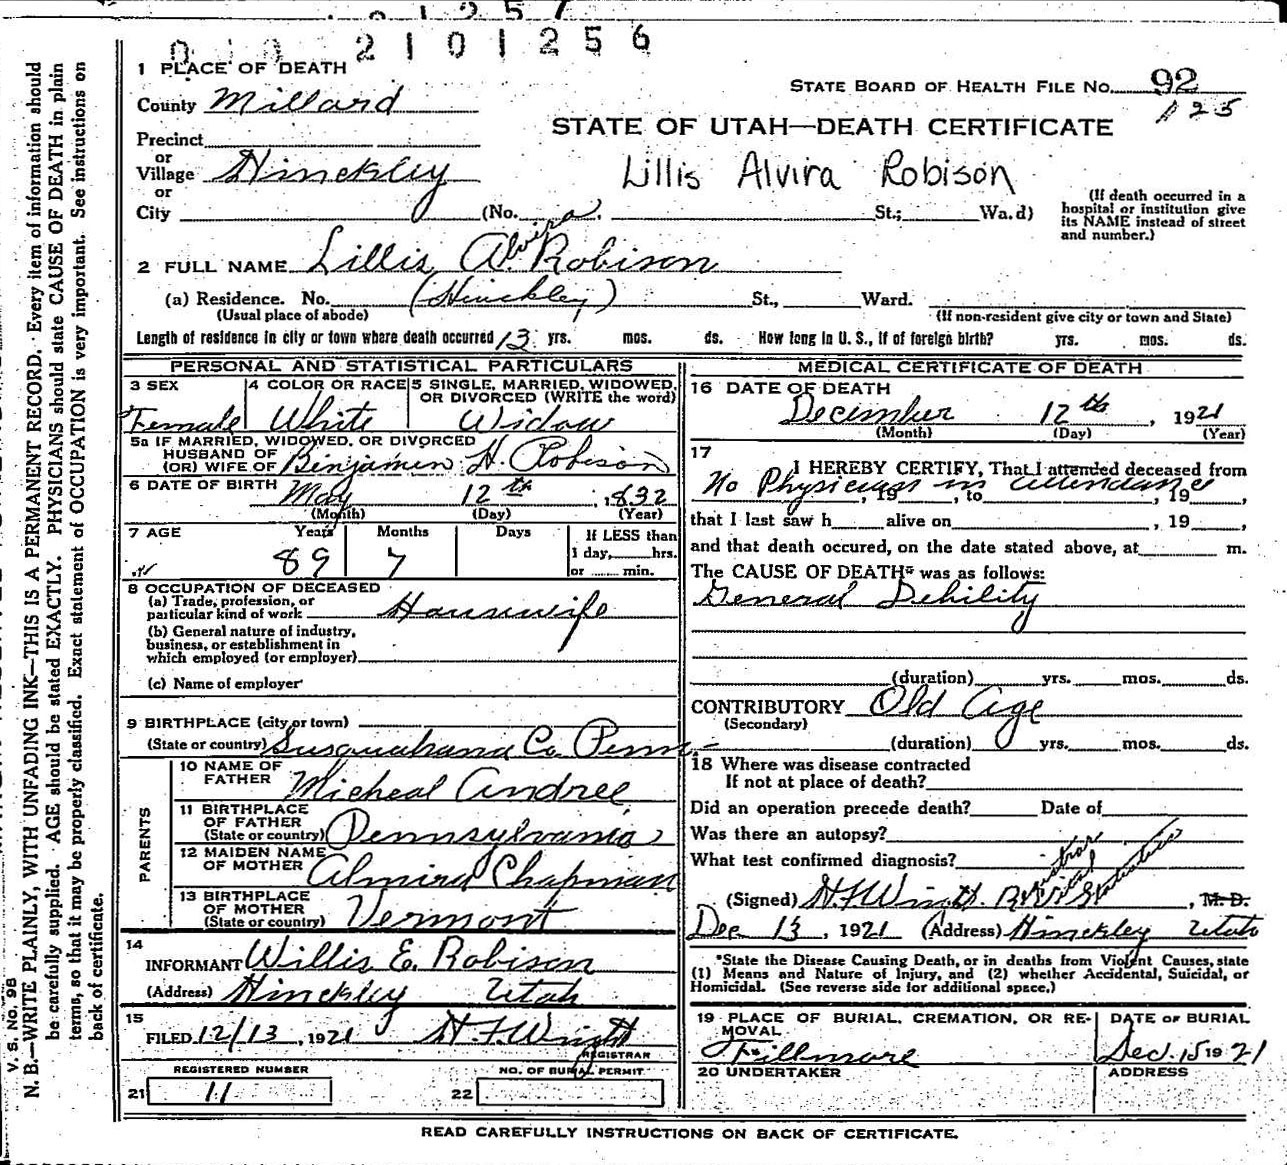 2101256
1 PLACE OF DEATH
County Millard
STATE BOARD OF HEALTH FILE No. 92
125
STATE OF UTAH—DEATH CERTIFICATE
Precinct
or
Village Hinckley
Lillis Alvira Robison
or
City (No. St.; Wa.d)
(If death occurred in a hospital or institution give its NAME instead of street and number.)
2 FULL NAME Lillis Alvira Robison
(a) Residence. No. (Hinckley) St., Ward.
(Usual place of abode) (If non-resident give city or town and State)
Length of residence in city or town where death occurred 13 yrs. mos. ds. How long in U. S., if of foreign birth? yrs. mos. ds.
PERSONAL AND STATISTICAL PARTICULARS
3 SEX
Female
4 COLOR OR RACE
White
5 SINGLE, MARRIED, WIDOWED,
OR DIVORCED (WRITE the word)
Widow
5a IF MARRIED, WIDOWED, OR DIVORCED
HUSBAND OF
(OR) WIFE OF Binjamin H. Robison
6 DATE OF BIRTH May 12th, 1832
(Month) (Day) (Year)
7 AGE Years Months Days If LESS than
89 7 1 day, hrs.
or min.
8 OCCUPATION OF DECEASED
(a) Trade, profession, or
particular kind of work Housewife
(b) General nature of industry,
business, or establishment in
which employed (or employer)
(c) Name of employer
9 BIRTHPLACE (city or town)
(State or country) Susquahana Co. Penn.
PARENTS
10 NAME OF
FATHER Micheal Andree
11 BIRTHPLACE
OF FATHER
(State or country) Pennsylvania
12 MAIDEN NAME
OF MOTHER Almira Chapman
13 BIRTHPLACE
OF MOTHER
(State or country) Vermont
14
INFORMANT Willis E. Robison
(Address) Hinckley Utah
15
FILED 12/13, 1921 H. F. Wright
REGISTRAR
REGISTERED NUMBER NO. OF BURIAL PERMIT
21 11 22
MEDICAL CERTIFICATE OF DEATH
16 DATE OF DEATH
December 12th, 1921
(Month) (Day) (Year)
17
I HEREBY CERTIFY, That I attended deceased from
No Physician in attendance
, 19 , to , 19 ,
that I last saw h alive on , 19 ,
and that death occured, on the date stated above, at m.
The CAUSE OF DEATH* was as follows:
General Debility
(duration) yrs. mos. ds.
CONTRIBUTORY Old Age
(Secondary)
(duration) yrs. mos. ds.
18 Where was disease contracted
If not at place of death?
Did an operation precede death? Date of
Was there an autopsy?
What test confirmed diagnosis?
(Signed) H. F. Wright. Registrar Vital Statistics, M. D.
Dec 13, 1921 (Address) Hinckley Utah
*State the Disease Causing Death, or in deaths from Violent Causes, state
(1) Means and Nature of Injury, and (2) whether Accidental, Suicidal, or
Homicidal. (See reverse side for additional space.)
19 PLACE OF BURIAL, CREMATION, OR RE-
MOVAL
Fillmore
DATE OF BURIAL
Dec. 15 1921
20 UNDERTAKER ADDRESS
READ CAREFULLY INSTRUCTIONS ON BACK OF CERTIFICATE.
V. S. No. 98
N. B.—WRITE PLAINLY, WITH UNFADING INK—THIS IS A PERMANENT RECORD. Every item of information should
be carefully supplied. AGE should be stated EXACTLY. PHYSICIANS should state CAUSE OF DEATH in plain
terms, so that it may be properly classified. Exact statement of OCCUPATION is very important. See instructions on
back of certificate.